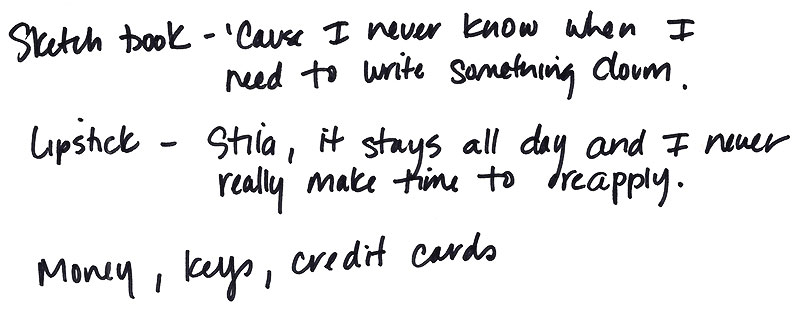 Sketch book - 'Cause I never know when I
need to write something down.
Lipstick - Stila, it stays all day and I never
really make time to reapply.
Money, keys, credit cards